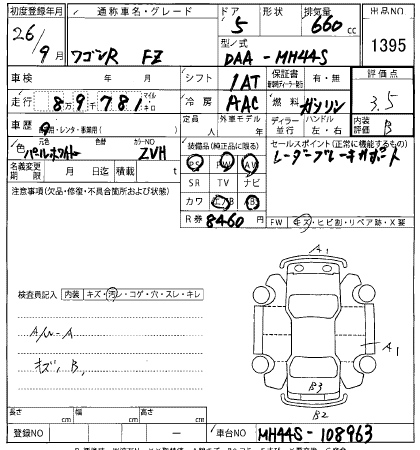 初度登録年月 通称車名・グレード ドア 形状 排気量 出品NO
26/9月 ワゴンR FZ 5 660cc 1395
型/式 DAA-MH44S
車検 年 月 シフト 1AT 保証書 有・無 評価点
走行 89781 マイル キロ 冷房 AAC 燃料 ガソリン 3.5
車歴 定員 人 外車モデル 年 ディーラー 並行 ハンドル 左・右 内装評価 B
自家用・レンタ・事業用( )
色 元色 パールホワイト 色替 カラーNO ZVH 装備品(純正品に限る) セールスポイント(正常に機能するもの)
PS PW AW レーダーブレーキサポート
名義変更期限 月 日迄 積載 t SR TV ナビ
注意事項(欠品・修復・不具合箇所および状態) カワ エアB
R券 8460 FW キズ・ヒビ割・リペア跡・X要
A1
検査員記入 内装 キズ・汚レ・コゲ・穴・スレ・キレ
A/W-A
キズ B1
A1
B3
B2
長さ cm 幅 cm 高さ cm
登録NO ー 車台NO MH44S-108963